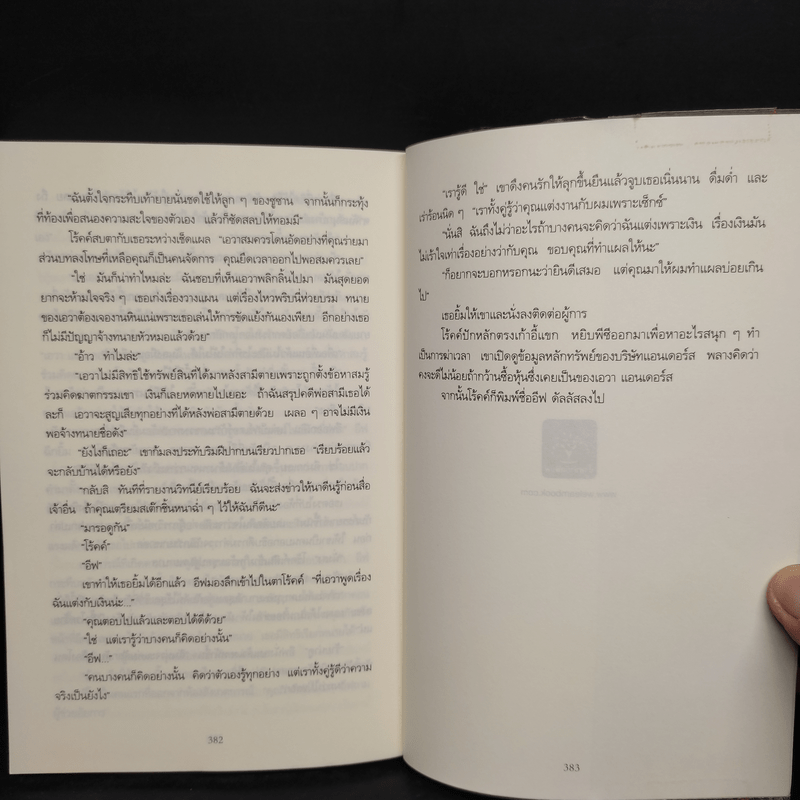 "ฉันตั้งใจกระทืบเท้ายายนั่นชดใช้ให้ลูก ๆ ของซูซาน จากนั้นก็กระทุ้ง
ที่ท้องเพื่อสนองความสะใจของตัวเอง แล้วก็ซัดสลบให้ทอมมี"
โร้คค์สบตากับเธอระหว่างเช็ดแผล "เอวาสมควรโดนอัดอย่างที่คุณร่ายมา
ส่วนบทลงโทษที่เหลือคุณก็เป็นคนจัดการ คุณยืดเวลาออกไปพอสมควรเลย"
"ใช่ มันก็น่าทำไหมล่ะ ฉันชอบที่เห็นเอวาพลิกลิ้นไปมา มันสุดยอด
ยากจะห้ามใจจริง ๆ เธอเก่งเรื่องวางแผน แต่เรื่องไหวพริบนี่ห่วยบรม ทนาย
ของเอวาต้องเจองานหินแน่เพราะเธอเล่นให้การขัดแย้งกันเองเพียบ อีกอย่างเธอ
ก็ไม่มีปัญญาจ้างทนายหัวหมอแล้วด้วย"
"อ้าว ทำไมล่ะ"
"เอวาไม่มีสิทธิใช้ทรัพย์สินที่ได้มาหลังสามีตายเพราะถูกตั้งข้อหาสมรู้
ร่วมคิดฆาตกรรมเขา เงินก็เลยหดหายไปเยอะ ถ้าฉันสรุปคดีพ่อสามีเธอได้
ละก็ เอวาจะสูญเสียทุกอย่างที่ได้หลังพ่อสามีตายด้วย เผลอ ๆ อาจไม่มีเงิน
พอจ้างทนายชื่อดัง"
"ยังไงก็เถอะ" เขาก้มลงประทับริมฝีปากบนเรียวปากเธอ "เรียบร้อยแล้ว
จะกลับบ้านได้หรือยัง"
"กลับสิ ทันทีที่รายงานวิทนีย์เรียบร้อย ฉันจะส่งข่าวให้นาดีนรู้ก่อนสื่อ
เจ้าอื่น ถ้าคุณเตรียมสเต็กชิ้นหนาฉ่ำ ๆ ไว้ให้ฉันก็ดีนะ"
"มารอดูกัน"
"โร้คค์"
"อีฟ"
เขาทำให้เธอยิ้มได้อีกแล้ว อีฟมองลึกเข้าไปในตาโร้คค์ "ที่เอวาพูดเรื่อง
ฉันแต่งกับเงินน่ะ..."
"คุณตอบไปแล้วและตอบได้ดีด้วย"
"ใช่ แต่เรารู้ว่าบางคนก็คิดอย่างนั้น"
"อีฟ..."
"คนบางคนก็คิดอย่างนั้น คิดว่าตัวเองรู้ทุกอย่าง แต่เราทั้งคู่รู้ดีว่าความ
จริงเป็นยังไง"
382
"เรารู้ดี ใช่" เขาดึงคนรักให้ลุกขึ้นยืนแล้วจูบเธอเนิ่นนาน ดื่มด่ำ และ
เร่าร้อนนิด ๆ "เราทั้งคู่รู้ว่าคุณแต่งงานกับผมเพราะเซ็กซ์"
"นั่นสิ ฉันถึงไม่ว่าอะไรถ้าบางคนจะคิดว่าฉันแต่งเพราะเงิน เรื่องเงินมัน
ไม่เร้าใจเท่าเรื่องอย่างว่ากับคุณ ขอบคุณที่ทำแผลให้นะ"
"ก็อยากจะบอกหรอกนะว่ายินดีเสมอ แต่คุณมาให้ผมทำแผลบ่อยเกิน
ไป"
เธอยิ้มให้เขาและนั่งลงติดต่อผู้การ
โร้คค์ปักหลักตรงเก้าอี้แขก หยิบพีซีออกมาเพื่อหาอะไรสนุก ๆ ทำ
เป็นการฆ่าเวลา เขาเปิดดูข้อมูลหลักทรัพย์ของบริษัทแอนเดอร์ส พลางคิดว่า
คงจะดีไม่น้อยถ้ากว้านซื้อหุ้นซึ่งเคยเป็นของเอวา แอนเดอร์ส
จากนั้นโร้คค์ก็พิมพ์ชื่ออีฟ ดัลลัสลงไป
383